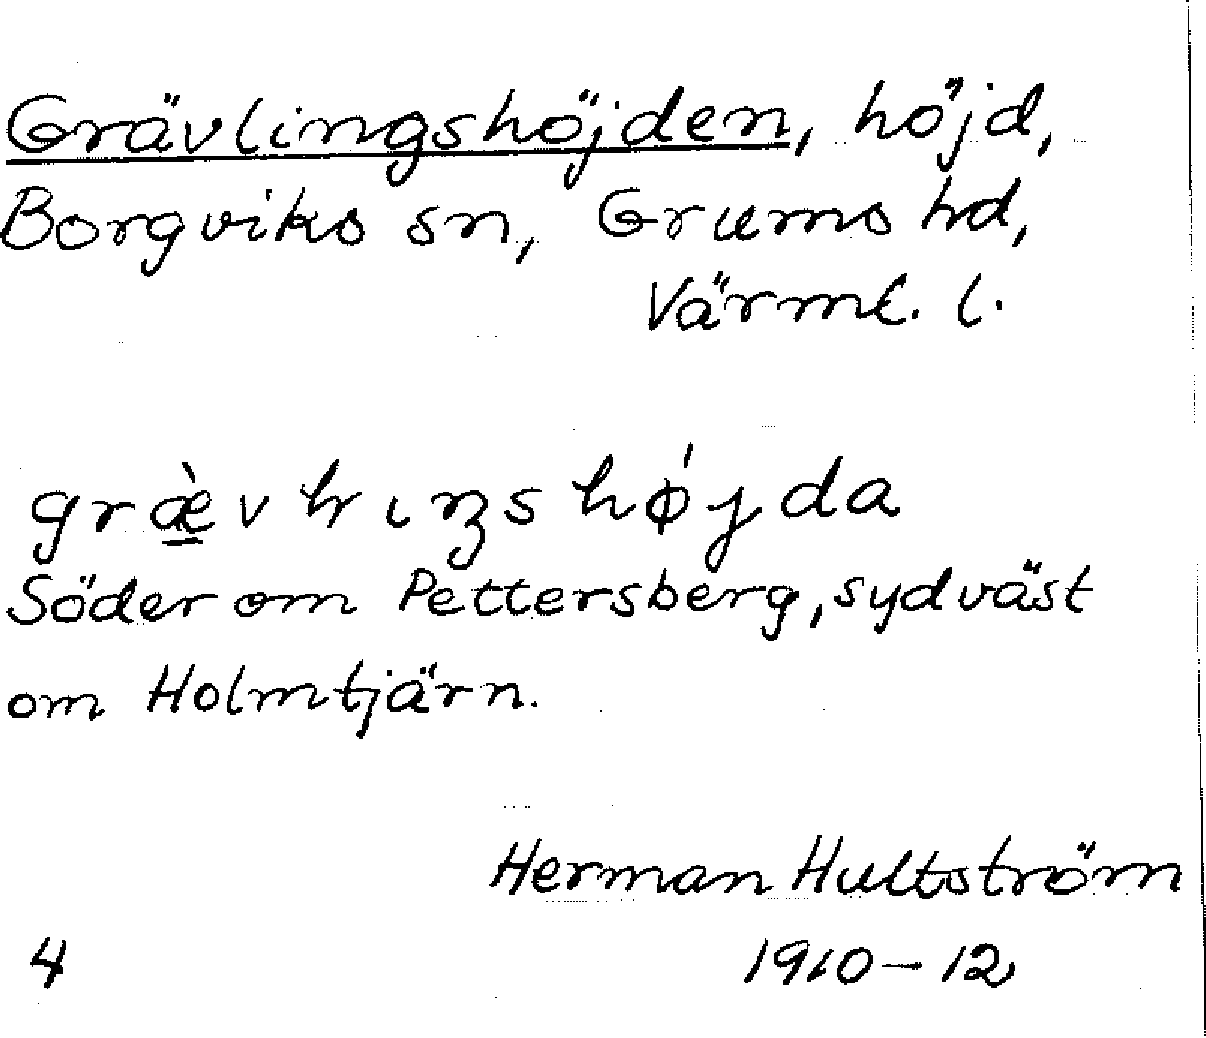 Grävlingshöjden, höjd,
Borgviks sn, Grums hd,
Värml. l.
Söder om Pettersberg, sydväst
om Holmtjärn.
Herman Hultström
4 1910-12